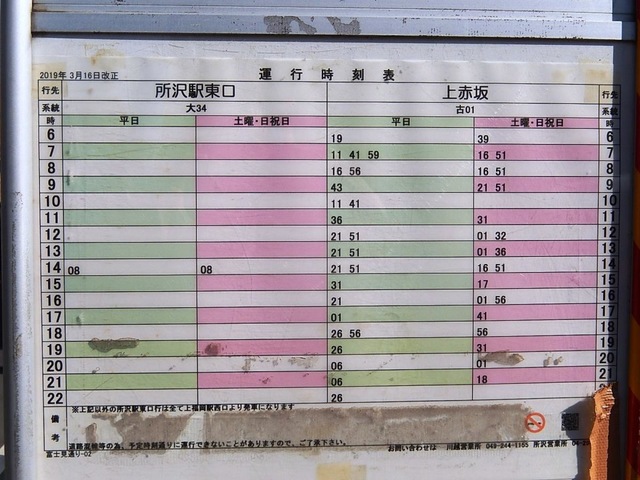 2019年 3月16日改正
運 行 時 刻 表
行先 所沢駅東口 上赤坂 行先
系統 大34 古01 系統
時 平日 土曜・日祝日 平日 土曜・日祝日 時
6 19 39 6
7 11 41 59 16 51 7
8 16 56 16 51 8
9 43 21 51 9
10 11 41 10
11 36 31 11
12 21 51 01 32 12
13 21 51 01 36 13
14 08 08 21 51 16 51 14
15 31 17 15
16 21 01 56 16
17 01 41 17
18 26 56 56 18
19 26 31 19
20 06 01 20
21 06 18 21
22 26
備考
※上記以外の所沢駅東口行は全て上福岡駅西口より発車になります
道路混雑等の為、予定時刻通りに運行できないことがありますので、ご了承下さい。
お問い合わせは 川越営業所 049-244-1165 所沢営業所
富士見通り-02